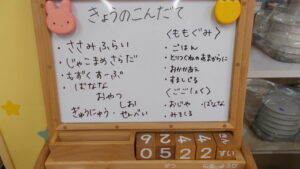 きょうのこんだて
・ささみふらい
・じゃこまめさらだ
・もずくすーぷ
・ばなな
おやつ
しお
ぎゅうにゅう・せんべい
〈ももぐみ〉
・ごはん
・とりつくねのあまがらに
・おかかあえ
・すましじる
〈ごごしょく〉
・おじや ・ばなな
・みるく
0 5 2 2 すい